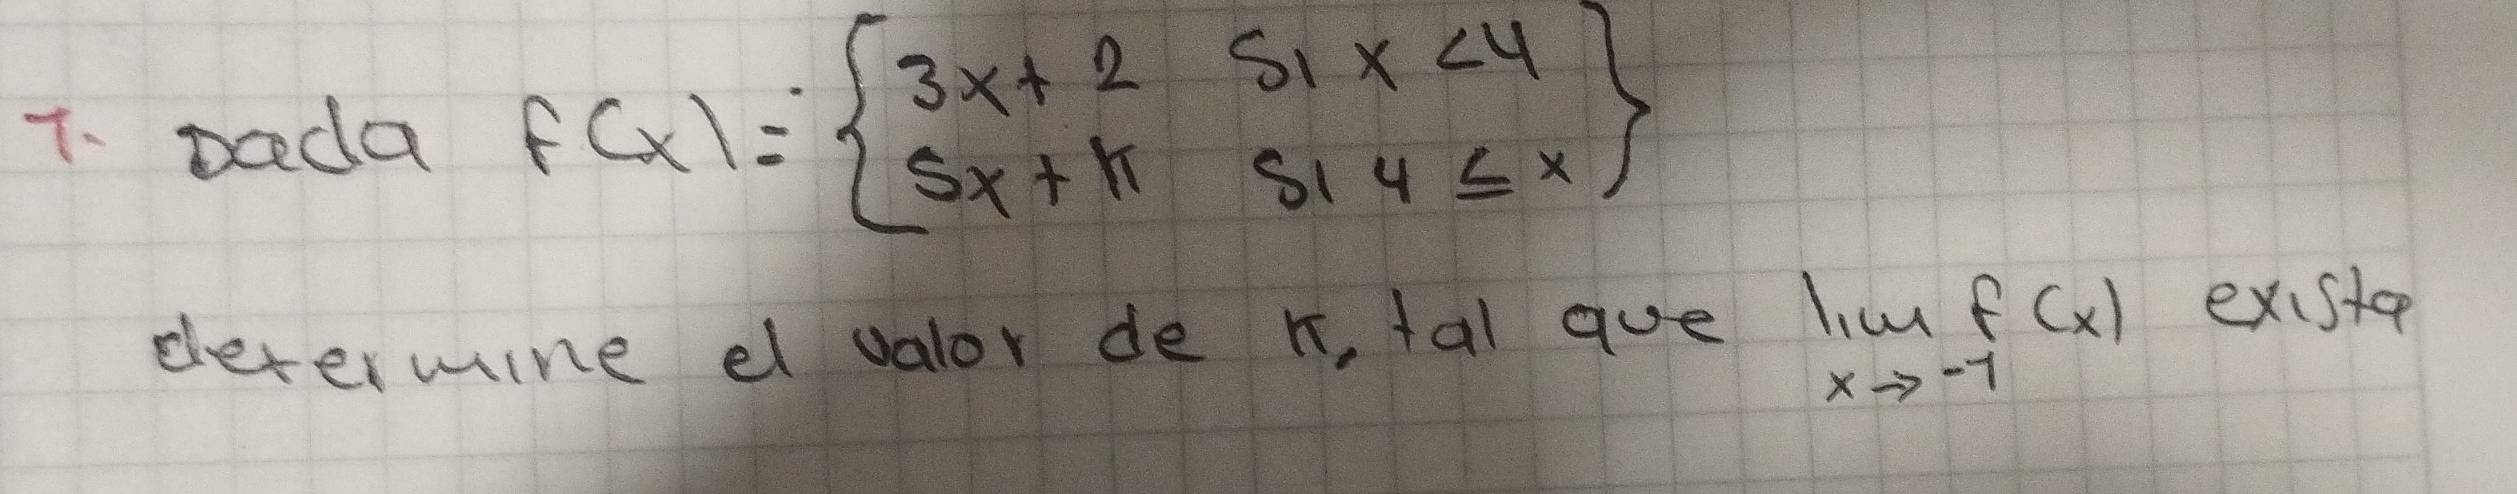 7. Dada f(x) = { 3x + 2 si x < 4
5x + K si 4 ≤ x }
determine el valor de K, tal que lim f(x) exista
x → -1